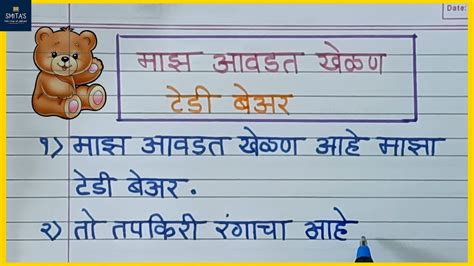 SMITA'S
Date:
माझ आवडत खेळण
टेडी बेअर
१) माझ आवडत खेळण आहे माझा
टेडी बेअर.
२) तो तपकिरी रंगाचा आहे